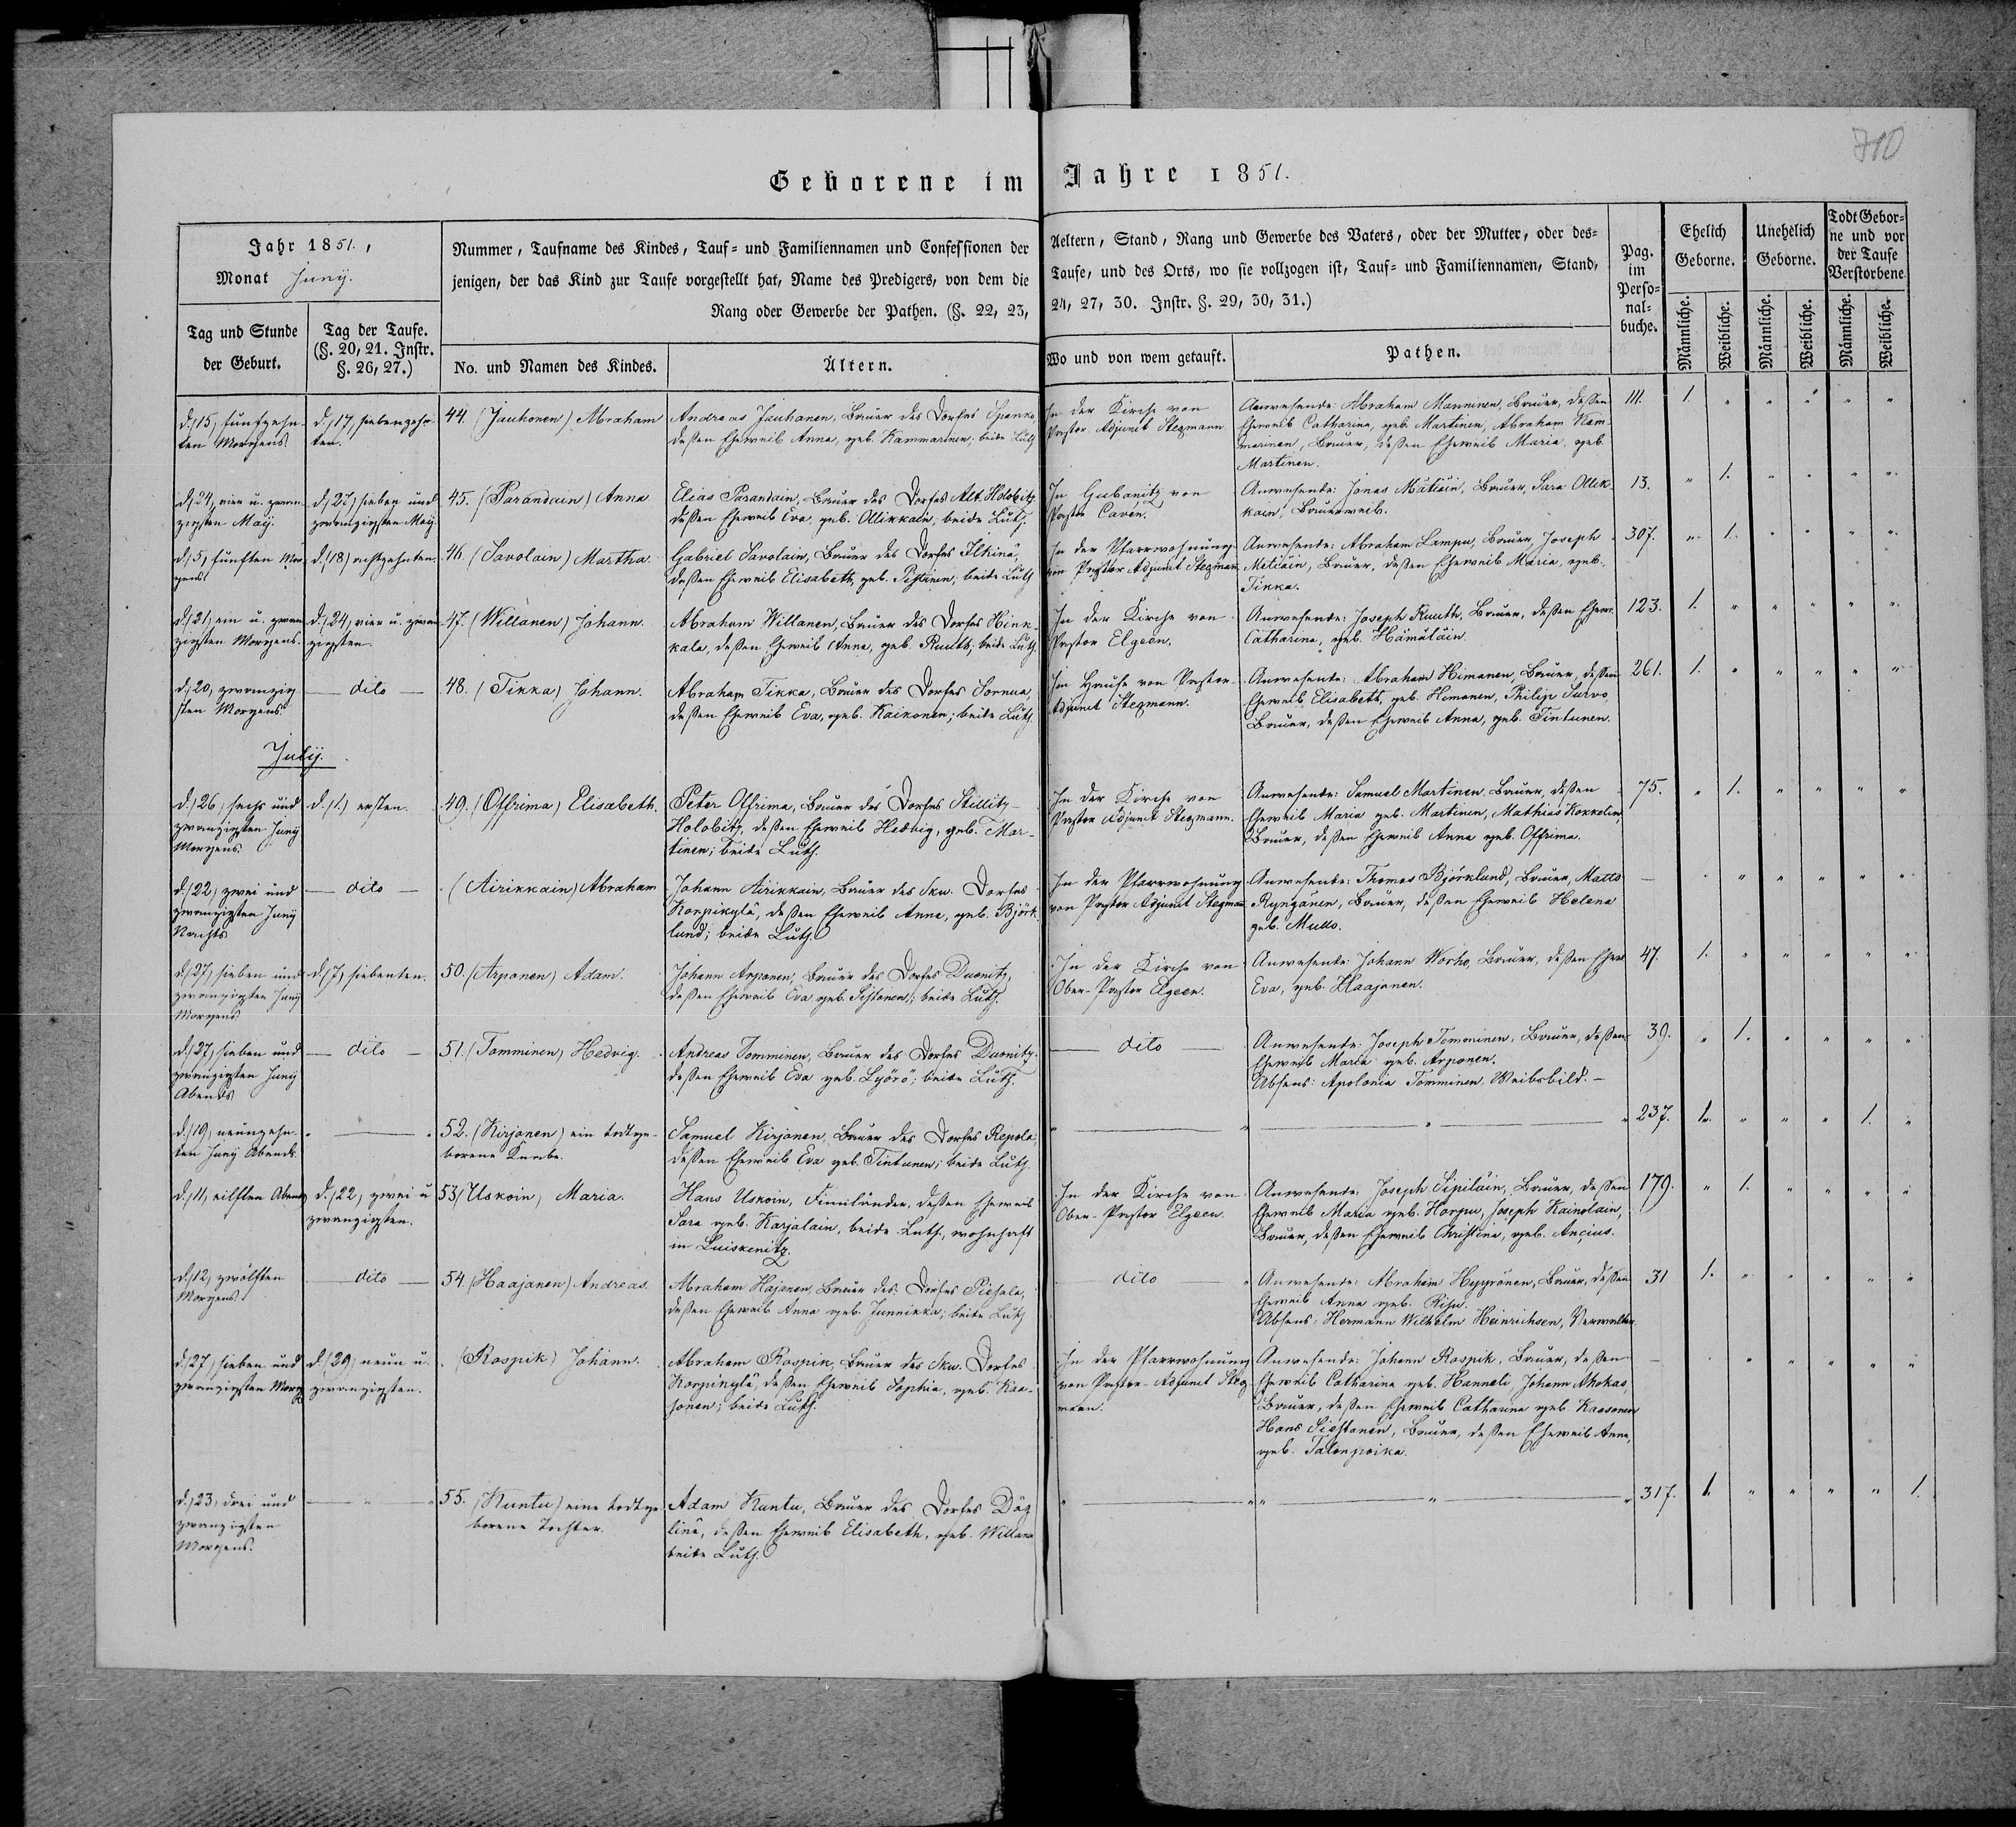 710
Geborene im Jahre 1851.
Jahr 1851,
Monat Junÿ.
Tag und Stunde
der Geburt.
Tag der Taufe.
(§. 20, 21. Instr.
§. 26, 27.)
Nummer, Taufname des Kindes, Tauf- und Familiennamen und Confessionen der
jenigen, der das Kind zur Taufe vorgestellt hat, Name des Predigers, von dem die
Rang oder Gewerbe der Pathen. (§. 22, 23,
No. und Namen des Kindes.
Ältern.
Aeltern, Stand, Rang und Gewerbe des Vaters, oder der Mutter, oder des-
Taufe, und des Orts, wo sie vollzogen ist, Tauf- und Familiennamen, Stand,
24, 27, 30. Instr. §. 29, 30, 31.)
Wo und von wem getauft.
Pathen.
Pag.
im
Perso-
nal-
buche.
Ehelich
Geborne.
Unehelich
Geborne.
Todt Gebor-
ne und vor
der Taufe
Verstorbene
Männliche.
Weibliche.
Männliche.
Weibliche.
Männliche.
Weibliche.
d. (15) fünfzehn-
ten Morgens.
d. (17) siebenzehn-
ten.
44. (Jauhonen) Abraham
Andreas Jauhanen, Bauer des Dorfes Spanko,
deßen Eheweib Anna, geb. Kammarinen; beide Luth.
In der Kirche von
Pastor Adjunct Stegmann
Anwesende: Abraham Manninen, Bauer, deßen
Eheweib Catharina, geb. Martinen, Abraham Kam-
marinen, Bauer, deßen Eheweib Maria, geb.
Martinen.
111. 1.
d. (24) vier u. zwan-
zigsten Maÿ.
d. (27) sieben und
zwanzigsten Maÿ
45. (Parandain) Anna
Elias Parandain, Bauer des Dorfes Alt Holobitz
deßen Eheweib Eva, geb. Ollikkain, beide Luth.
In Gubanitz von
Pastor Cavén.
Anwesende: Jonas Mätiäin, Bauer, Sara Ollik-
kain, Bauerweib.
13. 1.
d. (5) fünften Mor-
gens.
d. (18) achtzehnten.
46. (Savolain) Martha.
Gabriel Savolain, Bauer des Dorfes Ilkinä,
deßen Eheweib Elisabeth, geb. Pehkinen, beide Luth
In der Pfarrwohnung
von Pastor Adjunct Stegmann
Anwesende: Abraham Lampu, Bauer, Joseph
Mätiäin, Bauer, deßen Eheweib Maria, geb.
Tikka.
307. 1.
d. (21) ein u. zwan-
zigsten Morgens.
d. (24) vier u. zwan-
zigsten.
47. (Willanen) Johann.
Abraham Willanen, Bauer des Dorfes Hink-
kala, deßen Eheweib Anna, geb. Ruuth; beide Luth.
In der Kirche von
Pastor Elgeen.
Anwesende: Joseph Ruuth, Bauer, deßen Ehew.
Catharina, geb. Hämäläin.
123. 1.
d. (20) zwanzig-
sten Morgens.
— dito —
48. (Tikka) Johann.
Abraham Tikka, Bauer des Dorfes Sornua,
deßen Eheweib Eva, geb. Kaikonen; beide Luth.
Im Hause von Pastor-
Adjunct Stegmann.
Anwesende: Abraham Himanen, Bauer, deßen
Eheweib Elisabeth, geb. Himanen, Philip Survo,
Bauer, deßen Eheweib Anna, geb. Tintunen.
261. 1.
Julÿ.
d. (26) sechs und
zwanzigsten Junÿ
Morgens.
d. (1.) ersten.
49. (Offrima) Elisabeth.
Peter Offrima, Bauer des Dorfes Stillitz-
Holobitz, deßen Eheweib Hedvig, geb. Mar-
tinen; beide Luth.
In der Kirche von
Pastor Adjunct Stegmann.
Anwesende: Samuel Martinen, Bauer, deßen
Eheweib Maria geb. Martinen, Mathias Kokkolin,
Bauer, deßen Eheweib Anna geb. Offrima.
75. 1.
d. (22) zwei und
zwanzigsten Junÿ
Nachts
— dito —
(Airikkain) Abraham
Johann Airikkain, Bauer des Skw. Dorfes
Korpikylä, deßen Eheweib Anna, geb. Björk-
lund; beide Luth.
In der Pfarrwohnung
von Pastor Adjunct Stegmann
Anwesende: Thomas Björklund, Bauer, Matts
Ryngänen, Bauer, deßen Eheweib Helena
geb. Mullo.
—
d. (27) sieben und
zwanzigsten Junÿ
Morgens
d. (7) siebenten.
50. (Arponen) Adam.
Johann Arponen, Bauer des Dorfes Duonitz,
deßen Eheweib Eva geb. Sihtonen; beide Luth.
In der Kirche von
Ober-Pastor Elgeen.
Anwesende: Johann Worho, Bauer, deßen Ehew
Eva, geb. Haajanen.
47. 1.
d. (27) sieben und
zwanzigsten Junÿ
Abends
— dito —
51. (Tomminen) Hedvig.
Andreas Tomminen, Bauer des Dorfes Duonitz.
deßen Eheweib Eva geb. Lyörö; beide Luth.
— dito —
Anwesende: Joseph Tomminen, Bauer, deßen
Eheweib Maria geb. Arponen.
Absens: Apolonia Tomminen, Weibsbild. —
39. 1.
d. (19) neunzehn-
ten Junÿ Abends.
52. (Kirjonen) ein todtge-
borene Knabe.
Samuel Kirjonen, Bauer des Dorfes Repola,
deßen Eheweib Eva geb. Tintunen; beide Luth.
237. 1. 1.
d. (11) eilften Abends
d. (22) zwei u
zwanzigsten.
53. (Uskoin) Maria.
Hans Uskoin, Finnländer, deßen Eheweib
Sara geb. Karjalain, beide Luth., wohnhaft
in Luiskenitz.
In der Kirche von
Ober-Pastor Elgeen.
Anwesende: Joseph Sipiläin, Bauer, deßen
Eheweib Maria geb. Horpu, Joseph Kainolain,
Bauer, deßen Eheweib Christina, geb. Ancius.
179. 1.
d. (12) zwölften
Morgens.
— dito —
54. (Haajanen) Andreas.
Abraham Hajanen, Bauer des Dorfes Piesala,
deßen Eheweib Anna geb. Junnikka; beide Luth
dito
Anwesende: Abraham Hyyrönen, Bauer, deßen
Eheweib Anna geb. Rihu.
Absens: Hermann Wilhelm Heinrichsen, Verwalter.
31 1.
d. (27) sieben und
zwanzigsten Morg
d. (29) neun u.
zwanzigsten.
(Rospik) Johann.
Abraham Rospik, Bauer des Skw. Dorfes
Korpikylä, deßen Eheweib Sophia, geb. Kaa-
sonen; beide Luth.
In der Pfarrwohnung
von Pastor-Adjunct Steg-
mann.
Anwesende: Johann Rospik, Bauer, deßen
Eheweib Catharina geb. Hanneli, Johann Ahokas,
Bauer, deßen Eheweib Catharina geb. Kaasonen
Hans Siestonen, Bauer, deßen Eheweib Anna,
geb. Talonpoika.
—
d. (23) drei und
zwanzigsten
Morgens.
55. (Kuntu) eine todtge-
borene Tochter.
Adam Kuntu, Bauer des Dorfes
deßen Eheweib Elisabeth, geb. Willana
beide Luth.
317. 1. 1.